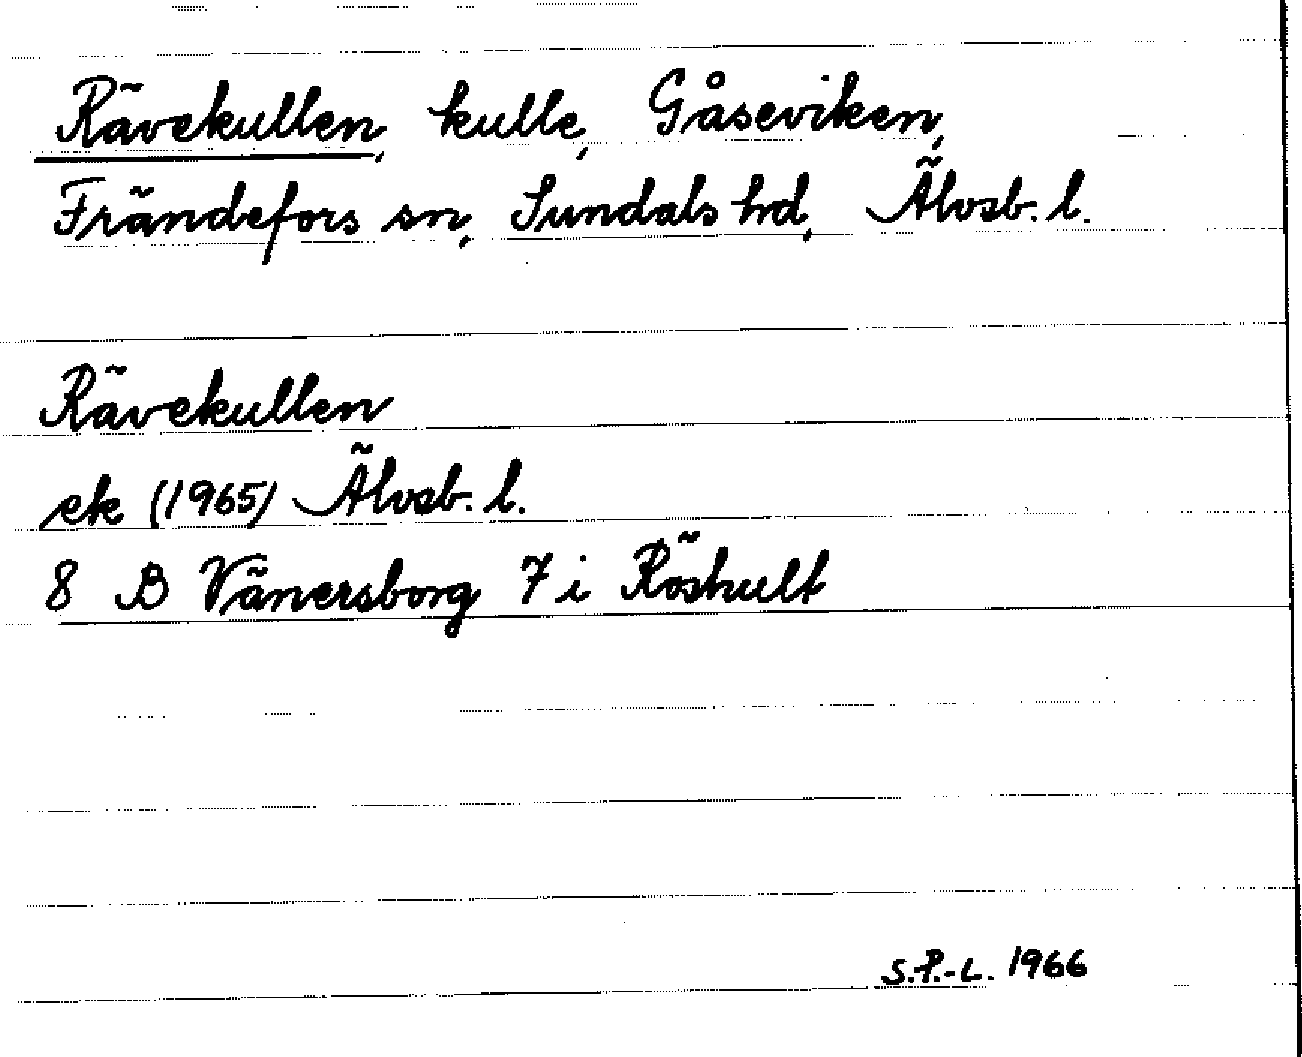 Rävekullen, kulle, Gåseviken,
Frändefors sn, Sundals hd, Älvsb. l.
Rävekullen
ek (1965) Älvsb. l.
8 B Vänersborg 7 i Röshult
S.P.-L. 1966